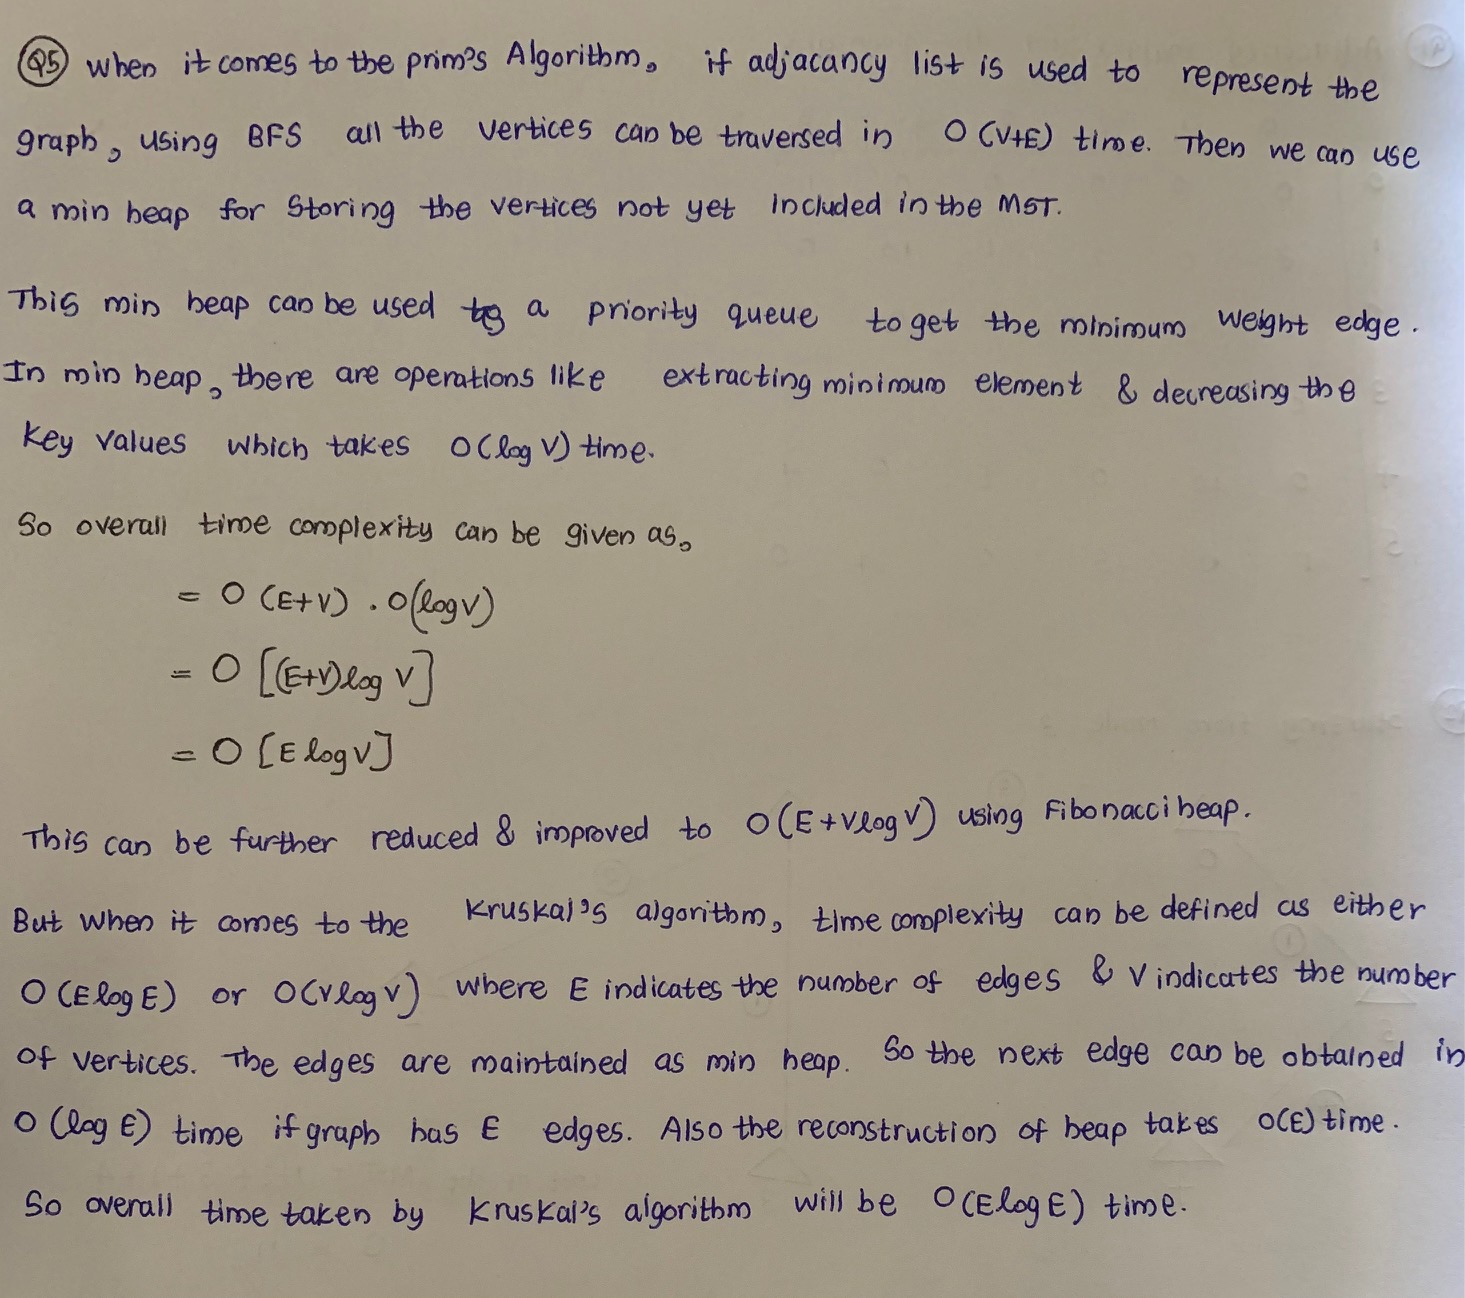 Q5 when it comes to the prim's Algorithm, if adjacancy list is used to represent the
graph, using BFS all the vertices can be traversed in O (V+E) time. Then we can use
a min heap for storing the vertices not yet included in the MST.
This min heap can be used a priority queue to get the minimum weight edge.
In min heap, there are operations like extracting minimum element & decreasing the
key values which takes O(log V) time.
So overall time complexity can be given as,
= O (E+V) . O(log V)
= O [(E+V)log V]
= O [E log V]
This can be further reduced & improved to O(E+Vlog V) using Fibonacci heap.
But when it comes to the Kruskal's algorithm, time complexity can be defined as either
O (E log E) or O(V log V) where E indicates the number of edges & V indicates the number
of vertices. The edges are maintained as min heap. So the next edge can be obtained in
O (log E) time if graph has E edges. Also the reconstruction of heap takes O(E) time.
So overall time taken by Kruskal's algorithm will be O(E log E) time.